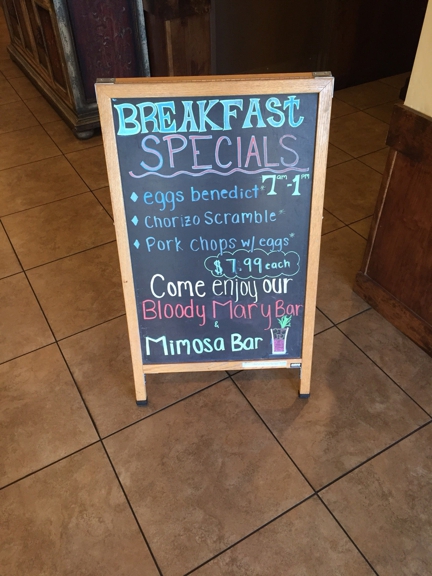 BREAKFAST
SPECIALS
7am-1pm
♦ eggs benedict*
♦ Chorizo Scramble*
♦ Pork Chops w/ eggs*
$7.99 each
Come enjoy our
Bloody Mary Bar
&
Mimosa Bar